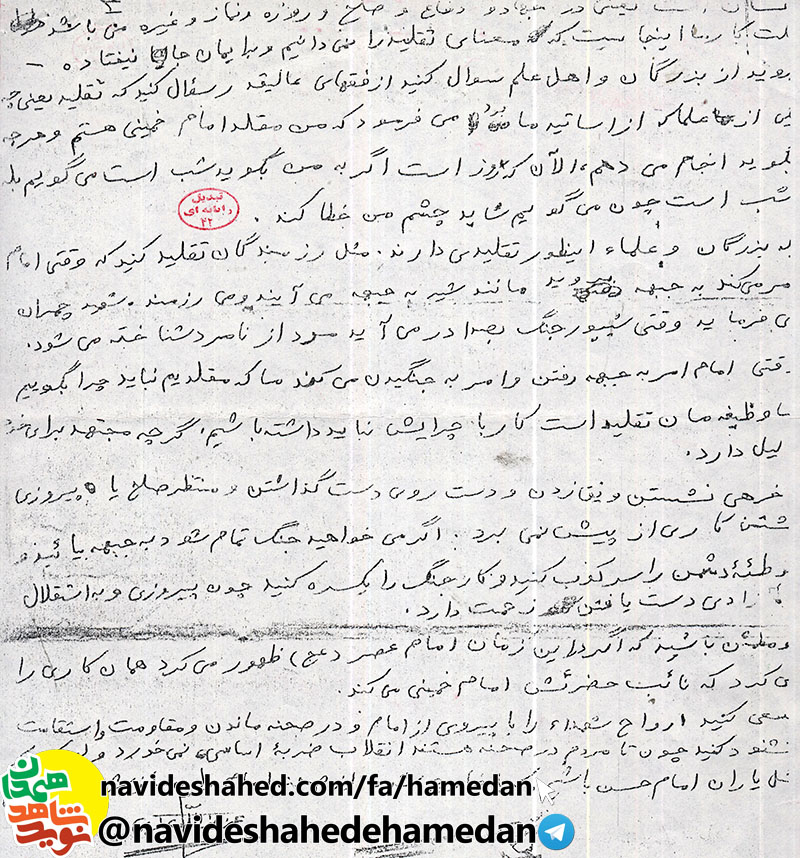 است یعنی در جهاد و دفاع و صلح و روزه و نماز و غیره می باشد
کار ما اینجا نیست که معنای تقلید را نمی دانیم و برایمان جا نیفتاده
بروید از بزرگان و اهل علم سوال کنید از فقهای عالیقدر سؤال کنید که تقلید یعنی چه
یکی از علماء که از اساتید ما بود می فرمود که من مقلد امام خمینی هستم و هر چه
بگوید انجام می دهم، الآن که روز است اگر به من بگوید شب است می گویم بله
شب است چون می گویم شاید چشم من خطا کند.
تبدیل
رایانه ای
۴۲
به بزرگان و علماء اینطور تقلیدی دارند. مثل رزمندگان تقلید کنید که وقتی امام
امر می کند به جبهه بروید مانند شیر به جبهه می آیند و می رزمند. شهید چمران
می فرماید وقتی شیپور جنگ بصدا در می آید مرد از نامرد شناخته می شود.
وقتی امام امر به جبهه رفتن و امر به جنگیدن می کند ما که مقلدیم نباید چرا بگوییم
ما وظیفه مان تقلید است کار با چرایش نباید داشته باشیم. گرچه مجتهد برای خود
دلیل دارد.
نشستن و نق زدن و دست روی دست گذاشتن و منتظر صلح یا پیروزی
کاری از پیش نمی برد. اگر می خواهید جنگ تمام شود به جبهه بیائید و
توطئهٔ دشمن را سرکوب کنید و کار جنگ را یکسره کنید چون پیروزی و به استقلال
آزادی دست یافتن زحمت دارد.
و مطمئن باشید که اگر در این زمان امام عصر (عج) ظهور می کرد همان کاری را
می کرد که نائب حضرتش امام خمینی می کند.
سعی کنید ارواح شهداء را با پیروی از امام و در صحنه ماندن و مقاومت و استقامت
خشنود کنید چون تا مردم در صحنه هستند انقلاب ضربهٔ اساسی نمی خورد و
مثل یاران امام حسن باشیم
همدان
شاهد
نوید
navideshahed.com/fa/hamedan
@navideshahedehamedan